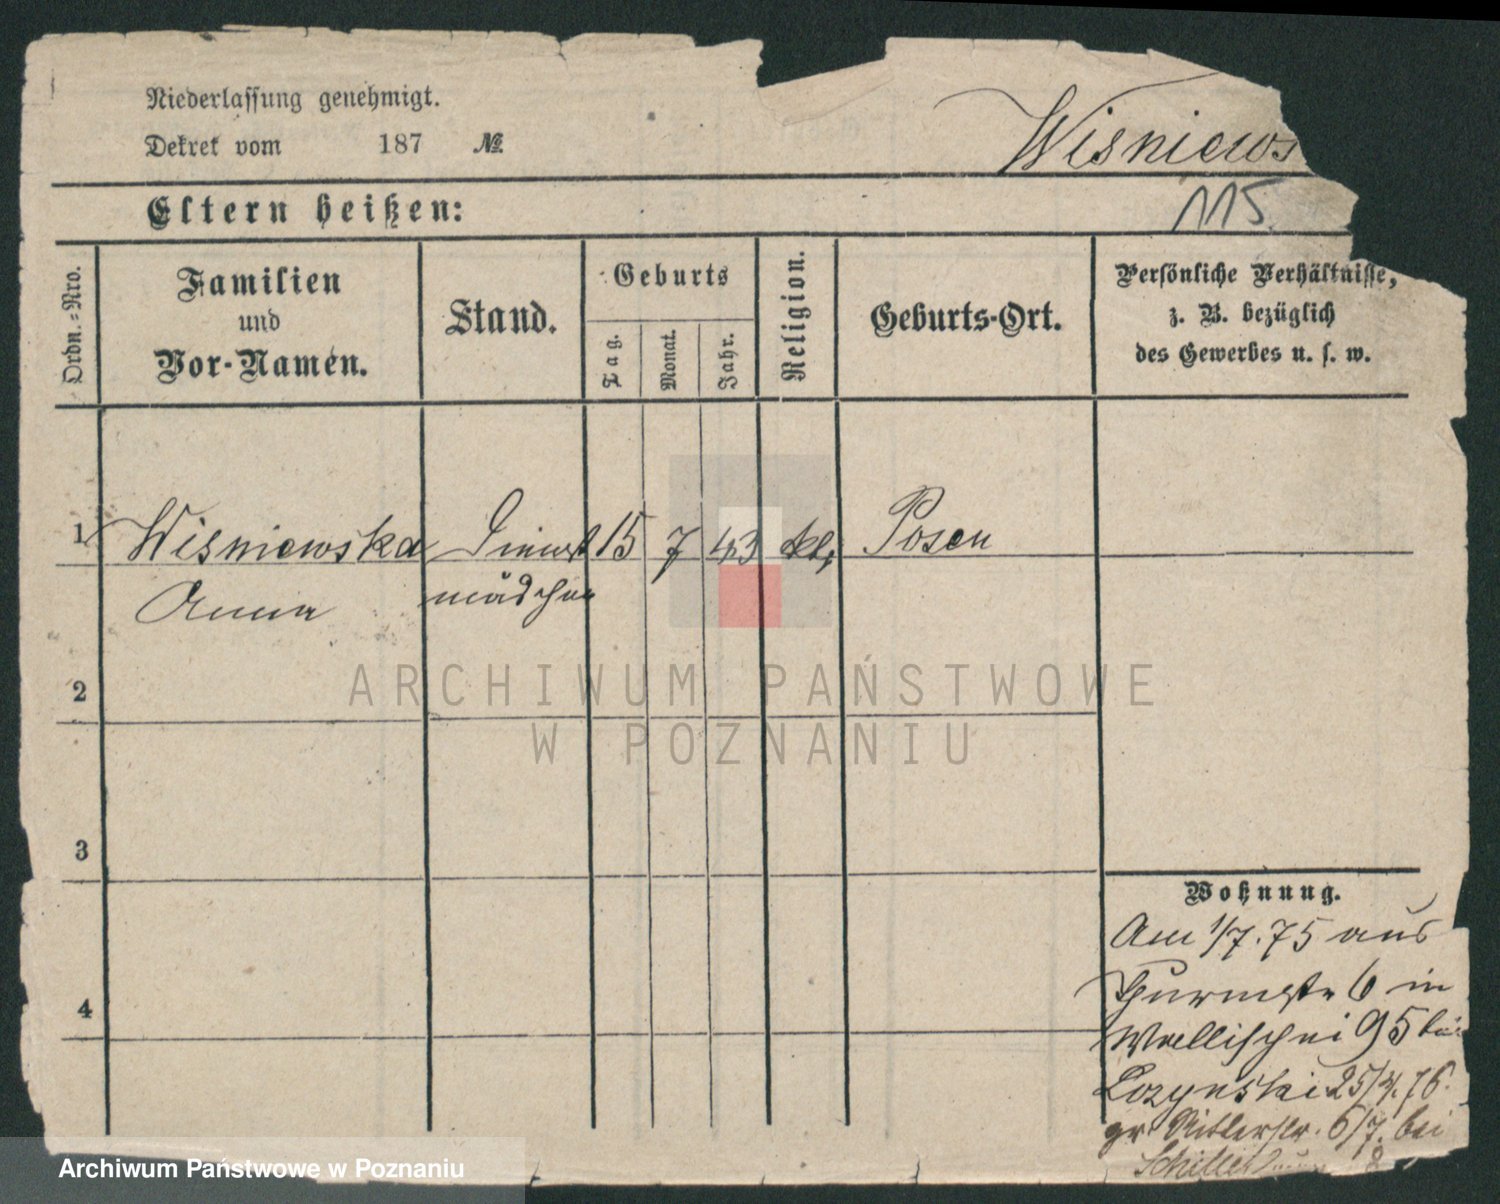 Niederlassung genehmigt.
Dekret vom 187 №
Wisniews
Eltern heißen:
115
Ordn.=Nro.
Familien
und
Vor-Namen.
Stand.
Geburts
Tag.
Monat.
Jahr.
Religion.
Geburts-Ort.
Persönliche Verhältnisse,
z. B. bezüglich
des Gewerbes u. s. w.
1 Wisniewska Dienst 15 7 43 kth Posen
Anna mädchen
ARCHIWUM PAŃSTWOWE
W POZNANIU
2
3
4
Wohnung.
Am 1/7. 75 aus
6 in
Wallischei 95 bei
Lozynski 25/4. 76.
gr Ritterstr. 6/7. bei
Archiwum Państwowe w Poznaniu